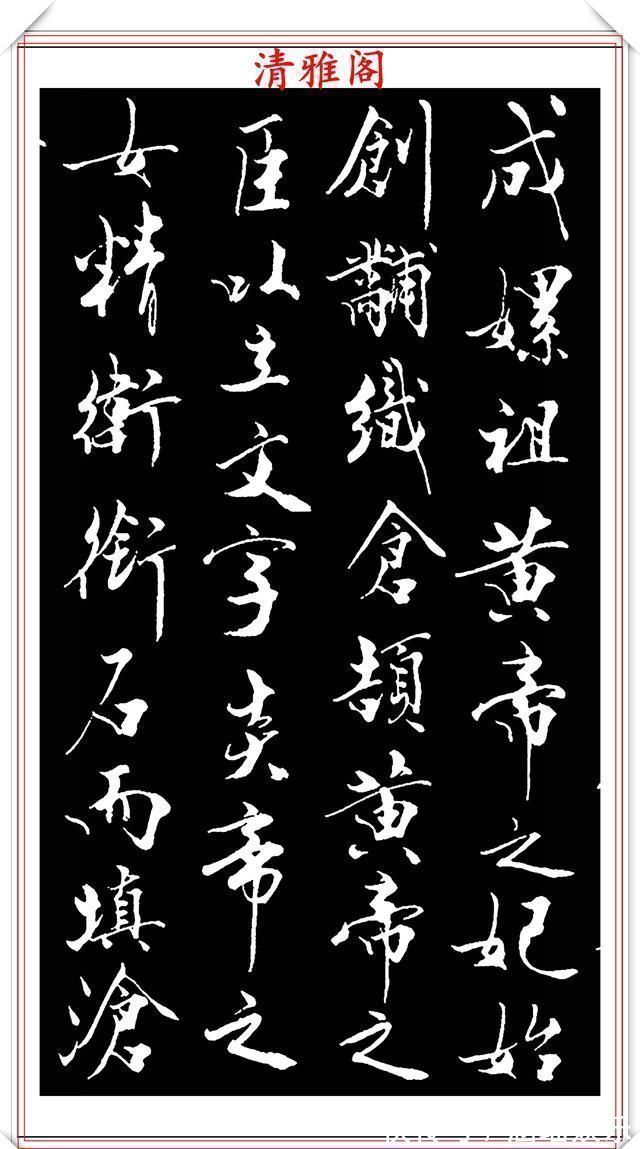 清雅阁
成嫘祖黄帝之妃始
創黼織倉頡黄帝之
臣以主文字炎帝之
女精衛銜石而填滄